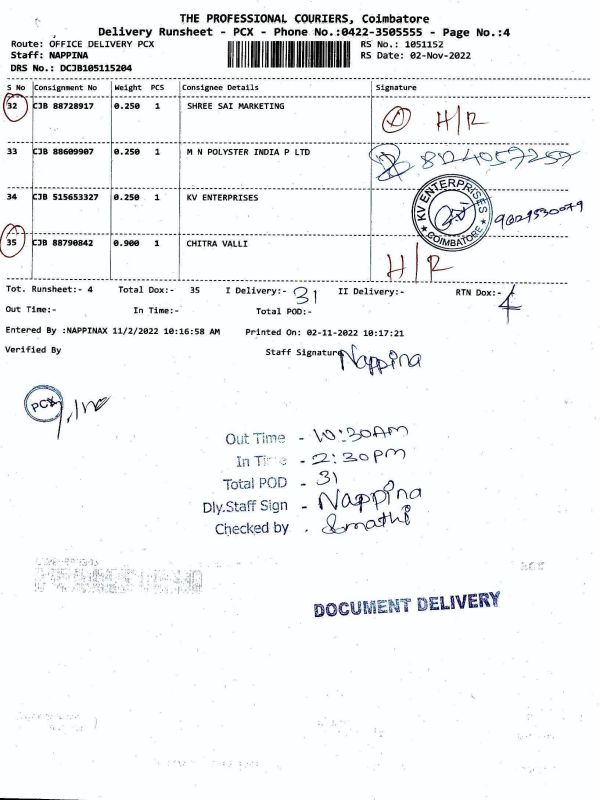 THE PROFESSIONAL COURIERS, Coimbatore
Delivery Runsheet - PCX - Phone No.:0422-3505555 - Page No.:4
Route: OFFICE DELIVERY PCX
RS No.: 1051152
Staff: NAPPINA
RS Date: 02-Nov-2022
DRS No.: DCJB105115204
S No Consignment No Weight PCS Consignee Details Signature
32 CJB 88728917 0.250 1 SHREE SAI MARKETING H/R
33 CJB 88609907 0.250 1 M N POLYSTER INDIA P LTD 8124057257
34 CJB 515653327 0.250 1 KV ENTERPRISES
KV ENTERPRISES
COIMBATORE
35 CJB 88790842 0.900 1 CHITRA VALLI H/R
Tot. Runsheet:- 4 Total Dox:- 35 I Delivery:- 31 II Delivery:- RTN Dox:- 4
Out Time:- In Time:- Total POD:-
Entered By :NAPPINAX 11/2/2022 10:16:58 AM Printed On: 02-11-2022 10:17:21
Verified By Staff Signature Nappina
PCX
Out Time - 10:30AM
In Time - 2:30pm
Total POD - 31
Dly.Staff Sign - Nappina
Checked by .
DOCUMENT DELIVERY